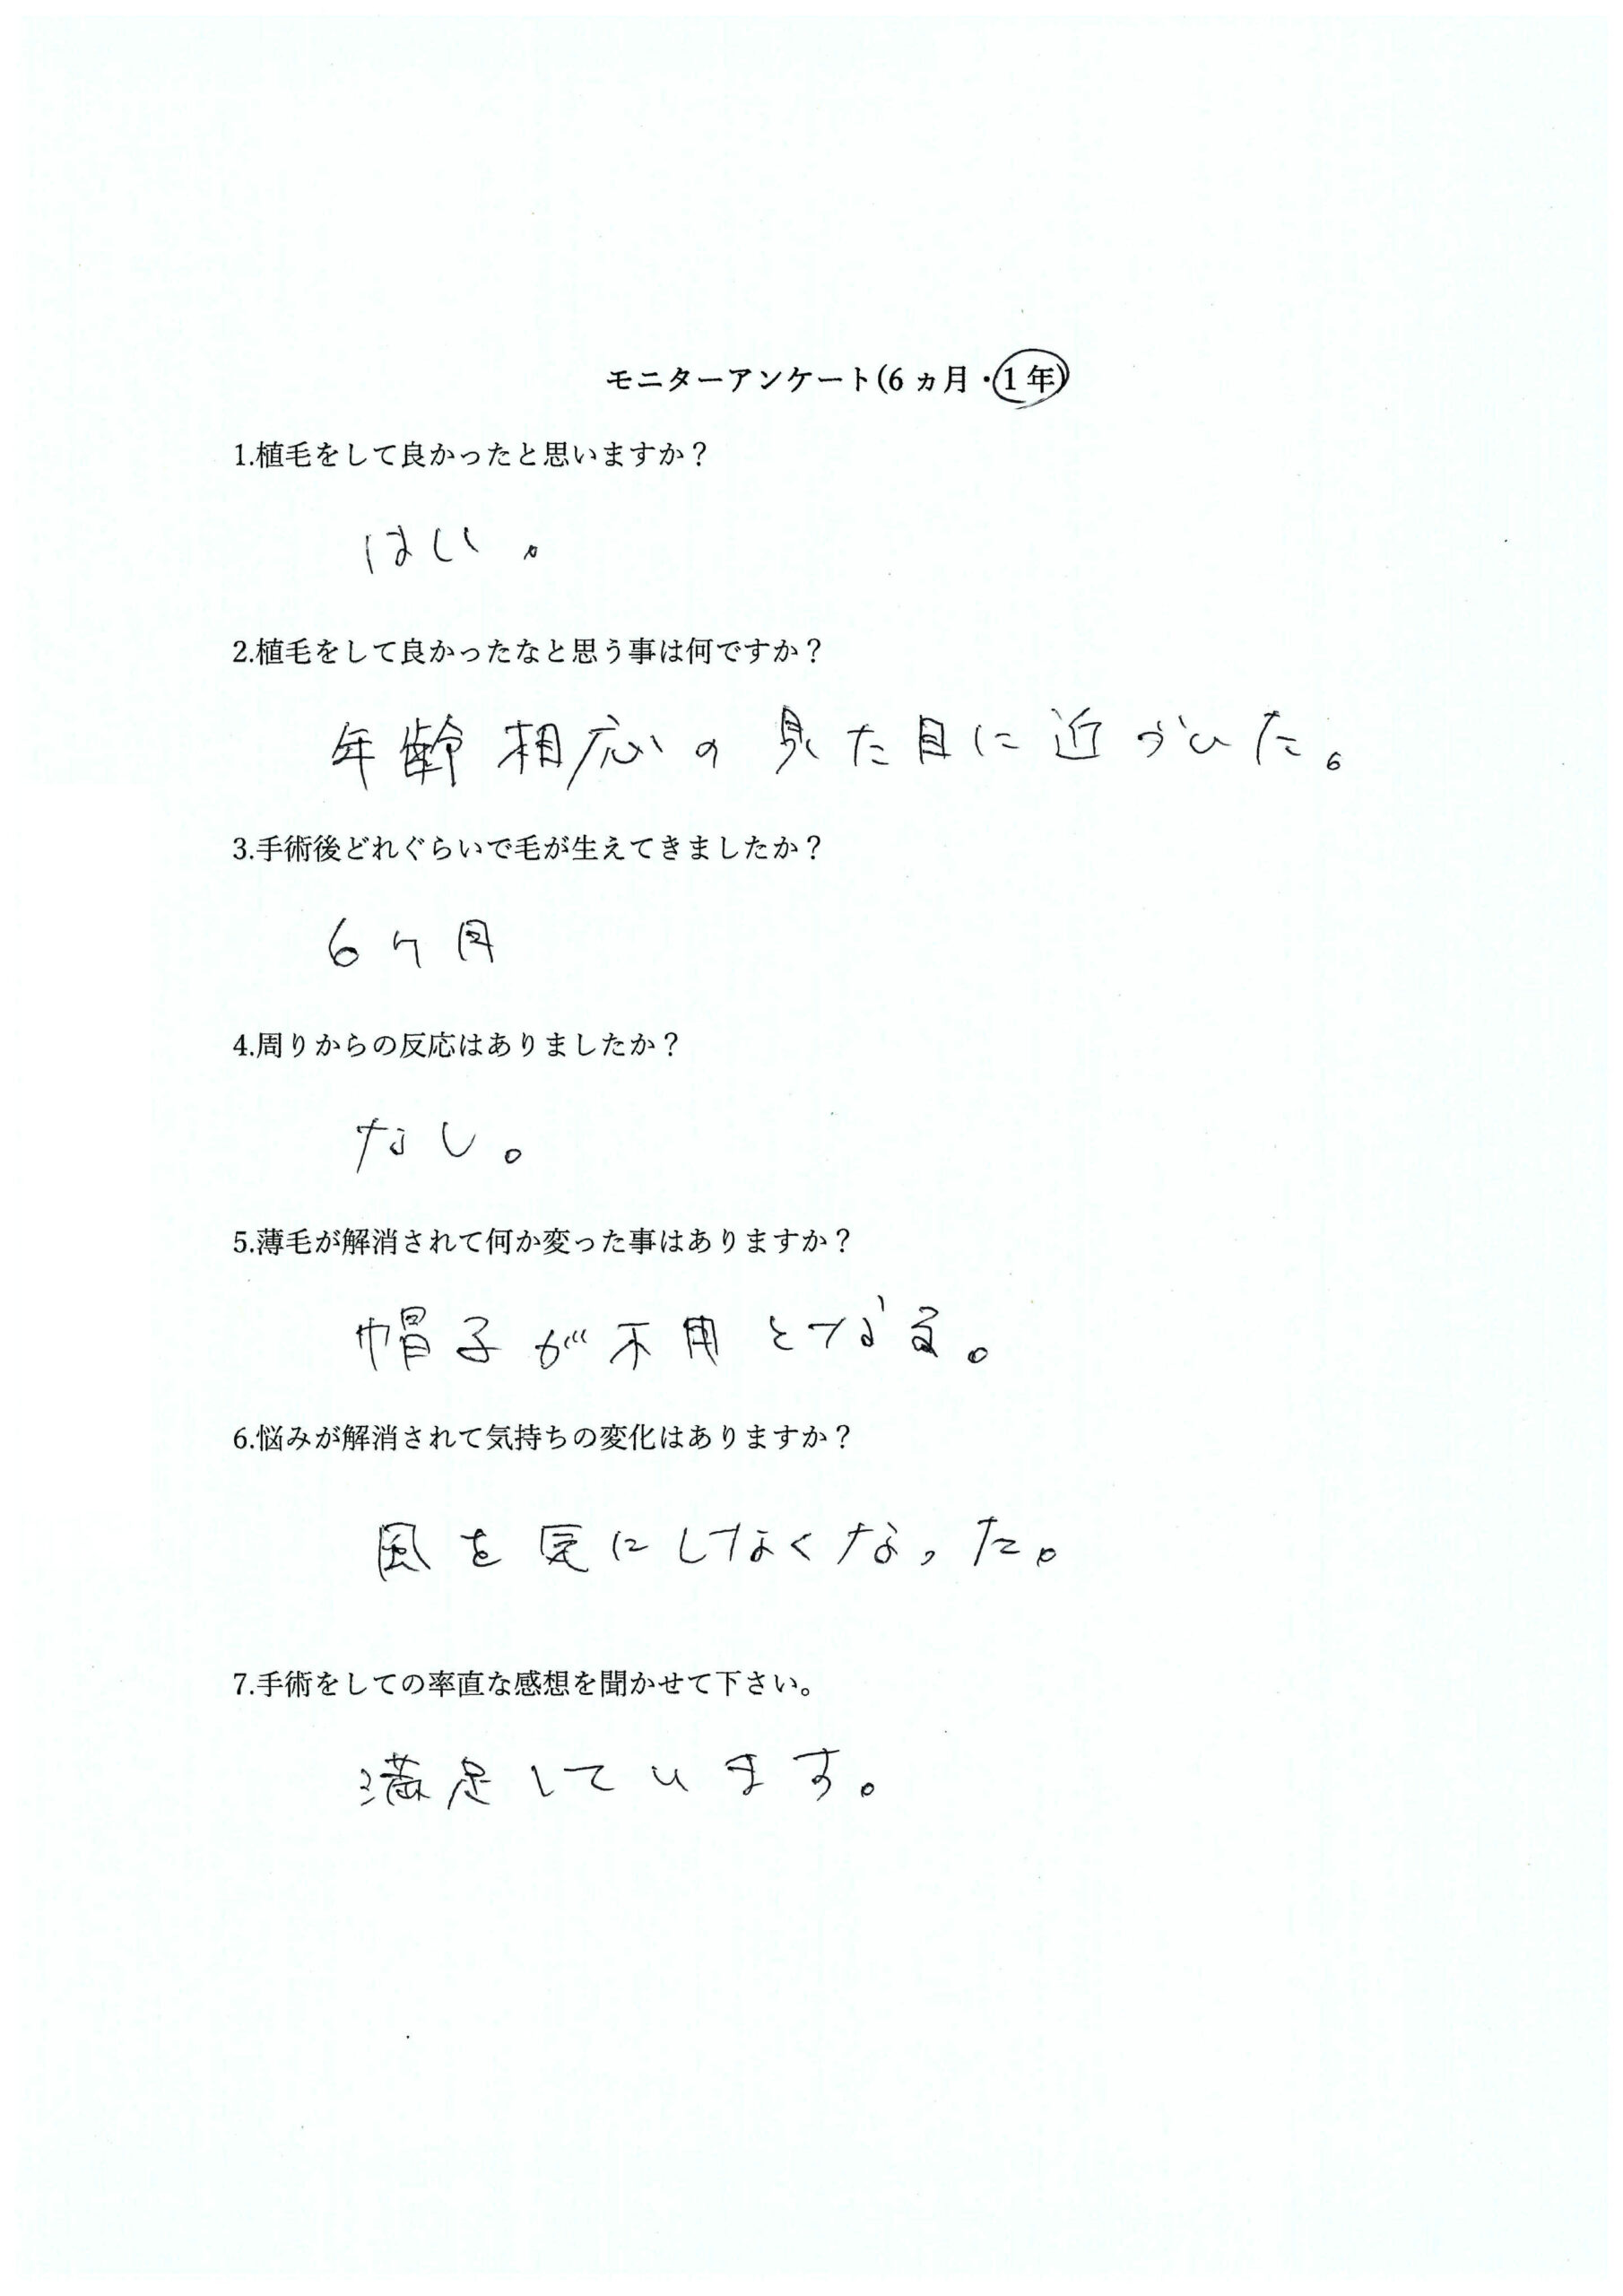 モニターアンケート(6 ヵ月・1 年)
1.植毛をして良かったと思いますか?
はい。
2.植毛をして良かったなと思う事は何ですか?
年齢相応の見た目に近づいた。
3.手術後どれぐらいで毛が生えてきましたか?
6ケ月
4.周りからの反応はありましたか?
なし。
5.薄毛が解消されて何か変った事はありますか?
帽子が不用となる。
6.悩みが解消されて気持ちの変化はありますか?
風を気にしなくなった。
7.手術をしての率直な感想を聞かせて下さい。
満足しています。